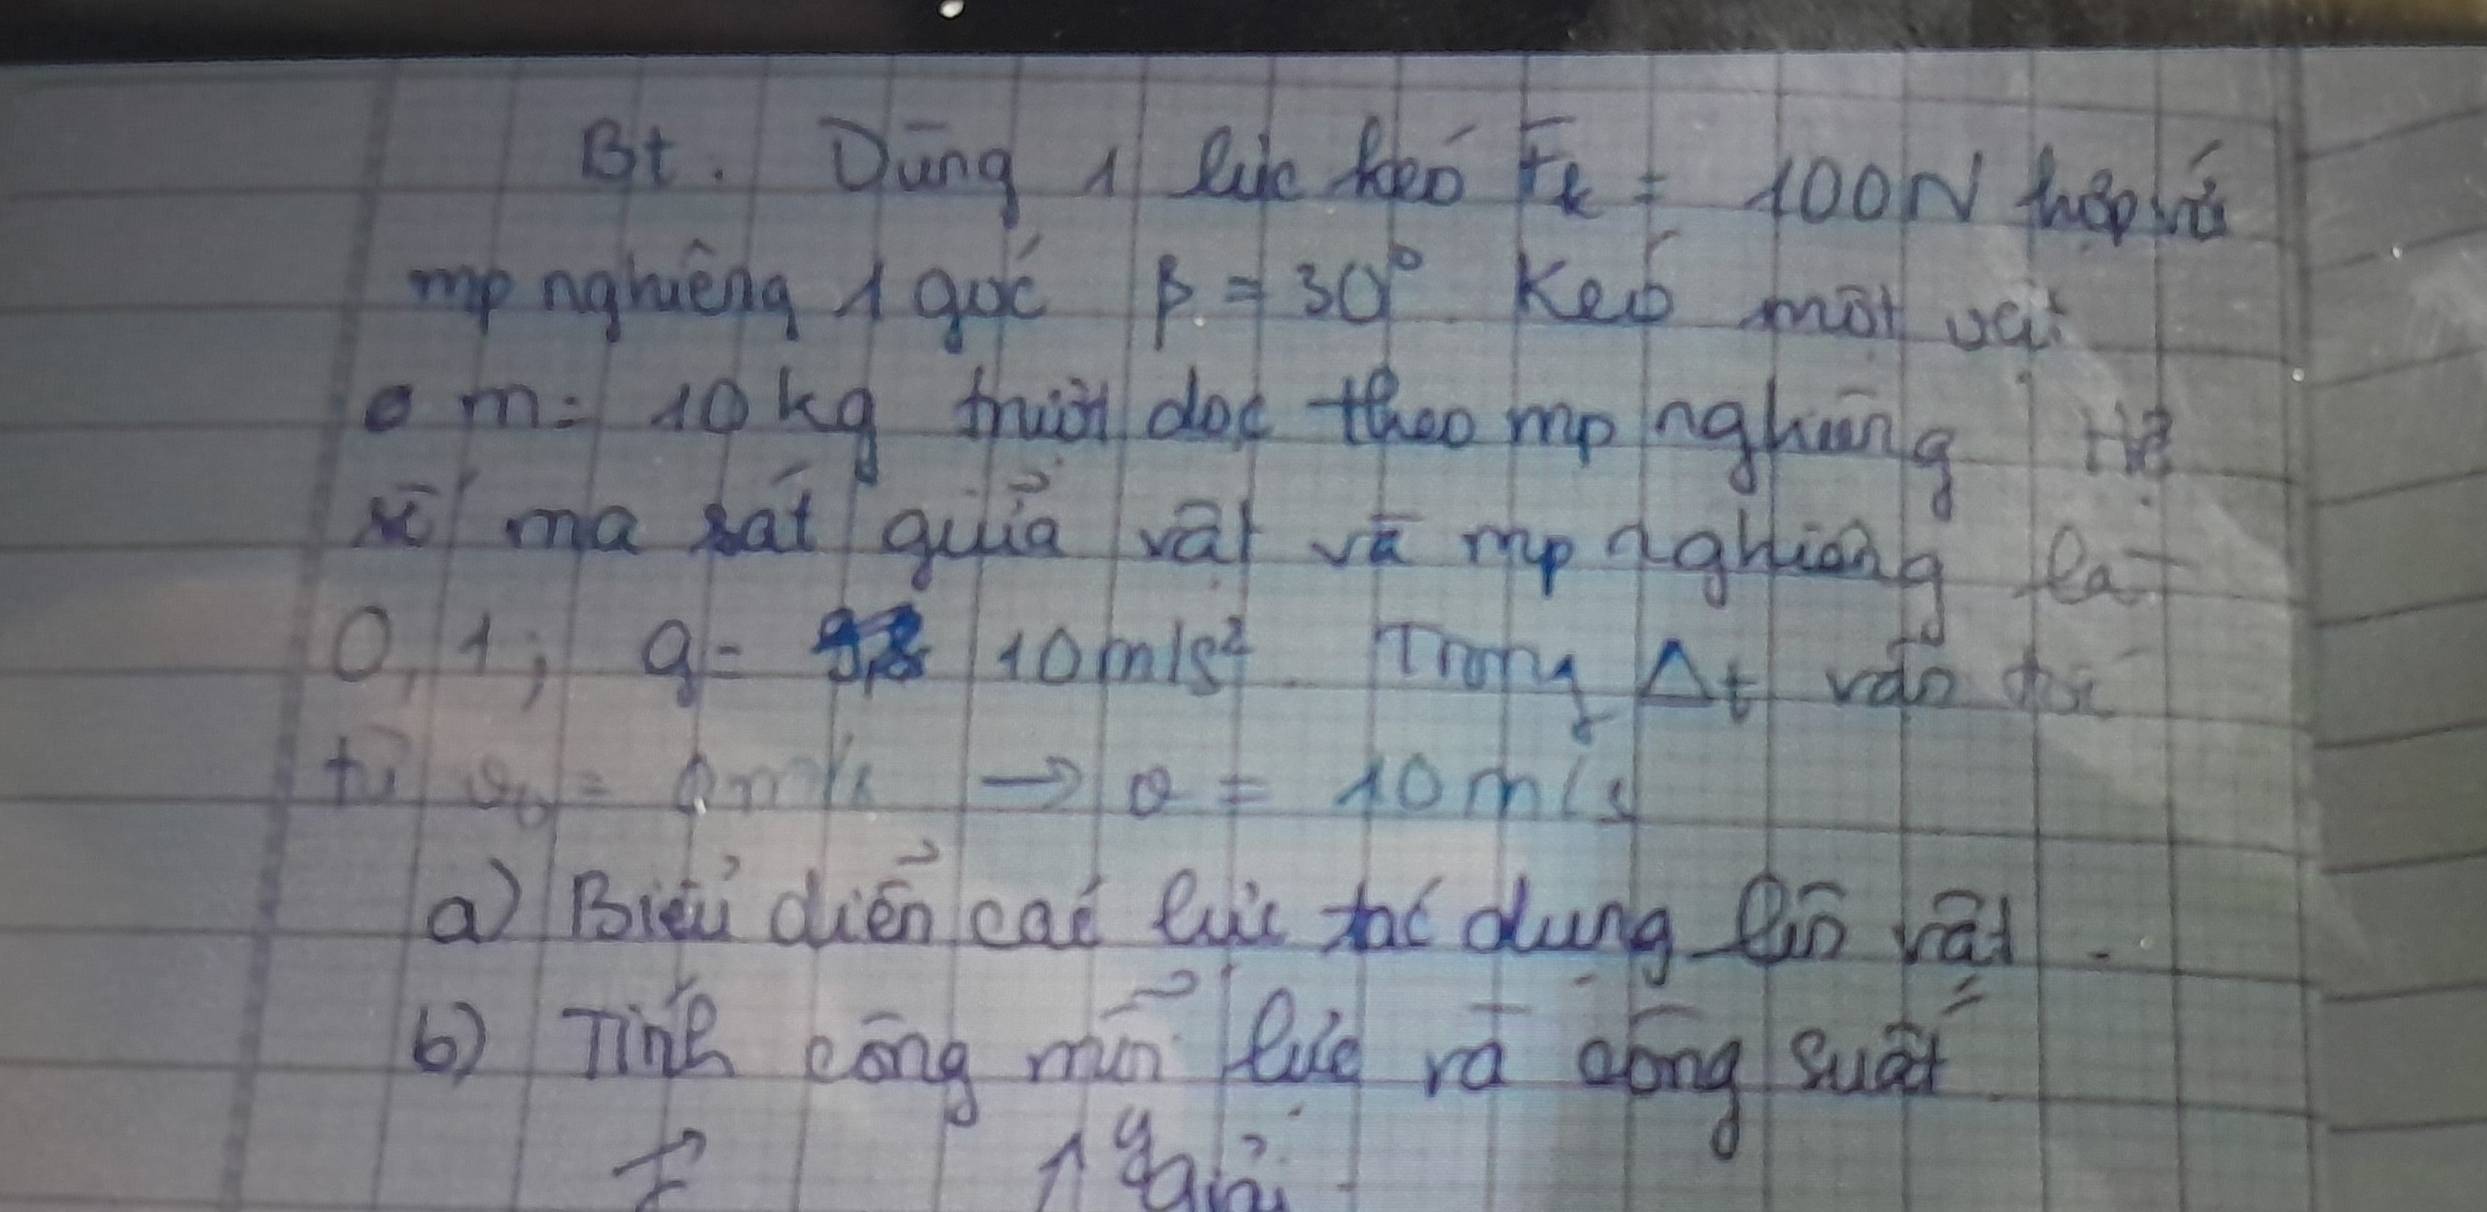 Bt. Dùng 1 lực kéo Fk = 100N hợp với
mp nghiêng 1 góc β = 30° Kéo một vật
m = 10 kg trượt dọc theo mp nghiêng Hệ
số ma sát giữa vật và mp nghiêng là
0,1; g = 10m/s². Trong Δt vận tốc
từ v₀ = 0m/s → v = 10 m/s
a) Biểu diễn các lực tác dụng lên vật.
b) Tính công mỗi lực và công suất
F y Giải